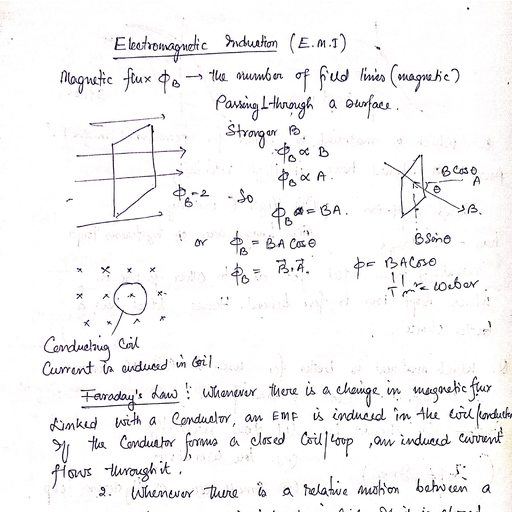 Electromagnetic Induction (E.M.I)
Magnetic flux ϕ_B → the number of field lines (magnetic)
Passing ⊥ through a surface.
Stronger B.
ϕ_B ∝ B
ϕ_B ∝ A.
ϕ_B = 2 - So
ϕ_B = BA.
B Cosθ
θ
A
B.
B Sinθ
or ϕ_B = BA Cosθ
ϕ_B = B⃗.A⃗.
ϕ = BA Cosθ
T m² = weber
x x x x
x x x
x x x x
Conducting Coil
Current is induced in coil.
Faraday's Law : Whenever there is a change in magnetic flux
linked with a Conductor, an EMF is induced in the coil/conductor
If the Conductor forms a closed Coil/loop, an induced current
flows through it.
2. Whenever there is a relative motion between a